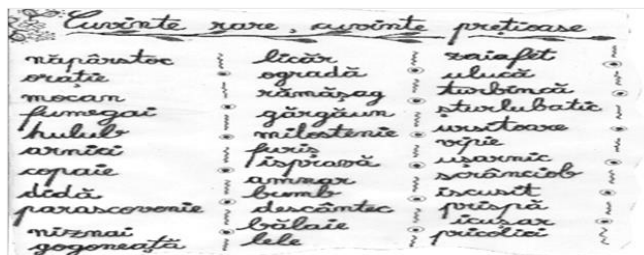 Cuvinte rare, cuvinte prețioase
năpârstoc
orație
mocan
fumegai
hulub
arnici
copaie
didă
parascovenie
niznai
gogoneață
licăr
ogradă
rămășag
gărgăun
milostenie
furiș
ispravă
amnar
bumb
descântec
bălaie
lele
zaiafet
ulucă
turbincă
șturlubatic
ursitoare
vipie
ușarnic
scrânciob
iscusit
prispă
icușar
pricolici